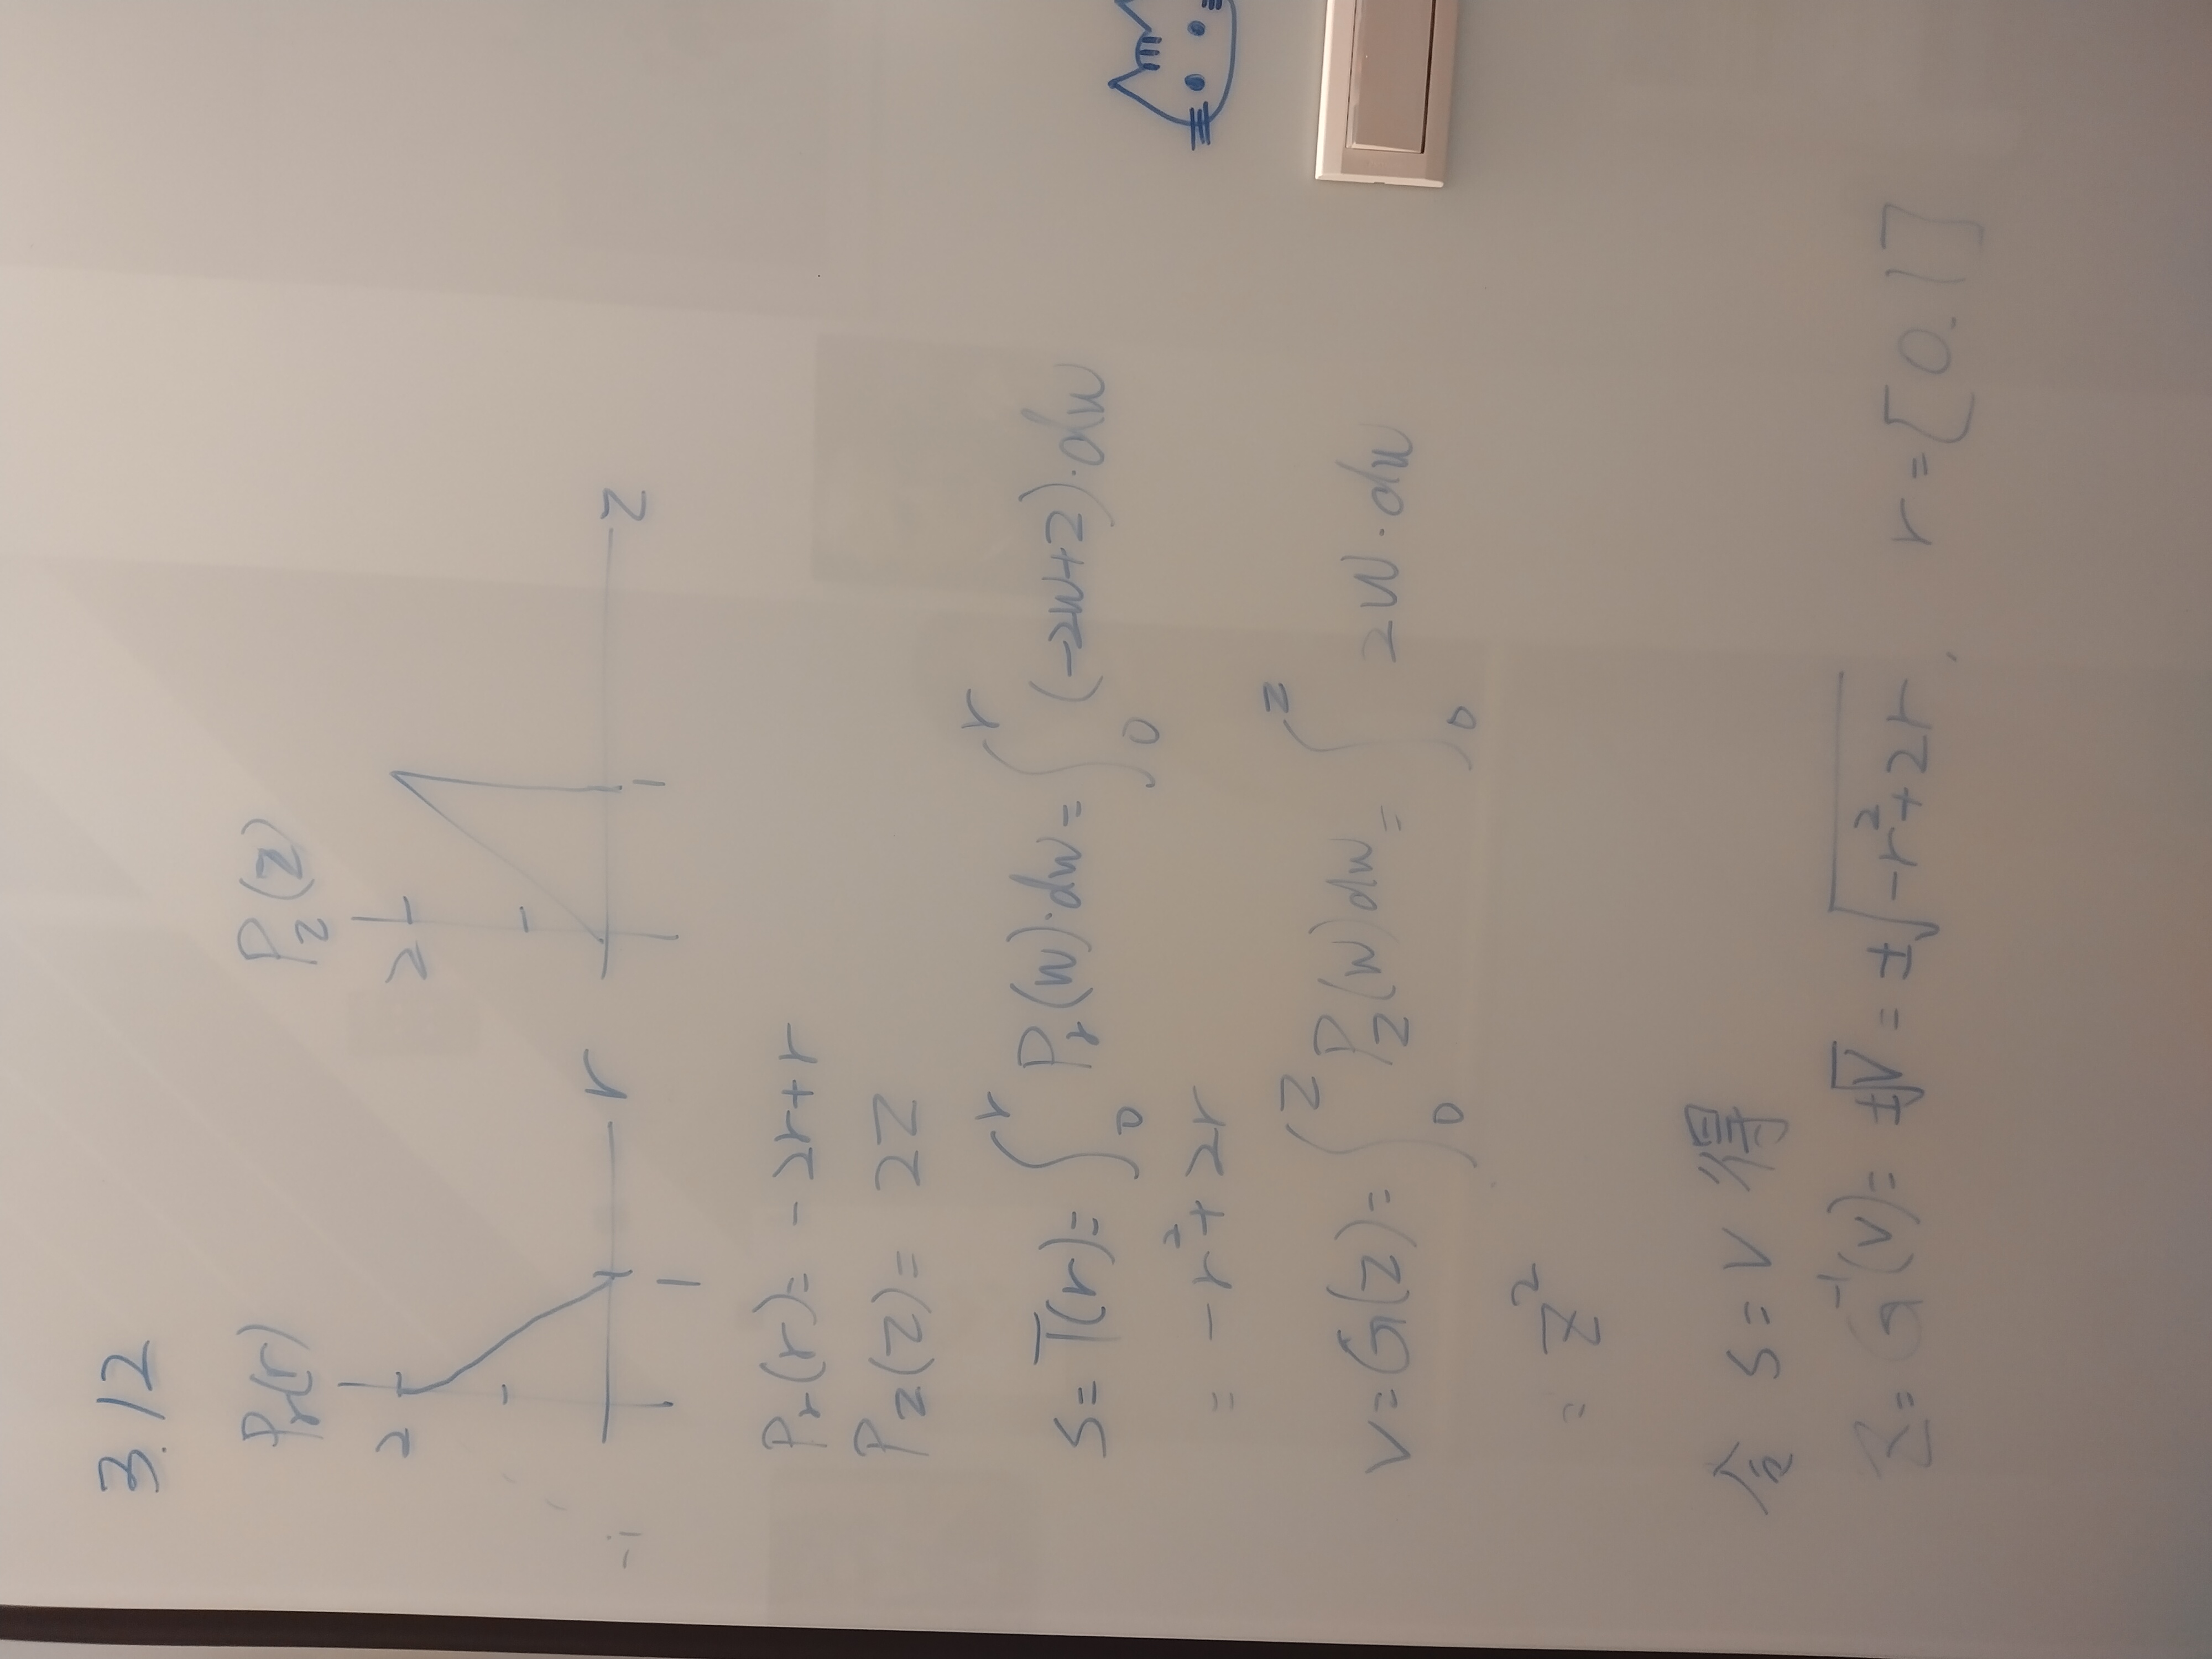 3.12
Pr(r) Pz(z)
2 2
-1 r z
1 1
Pr(r)= -2r+r
Pz(z)= 2z
S= T(r)= ∫₀ʳ Pr(w)·dw= ∫₀ʳ (-2w+2)·dw
= -r²+2r
v=G(z)= ∫₀ᶻ Pz(w)dw= ∫₀ᶻ 2w·dw
= z²
令 S=V 得
z= G⁻¹(v)= ±√V = ±√(-r²+2r), r=[0.1]